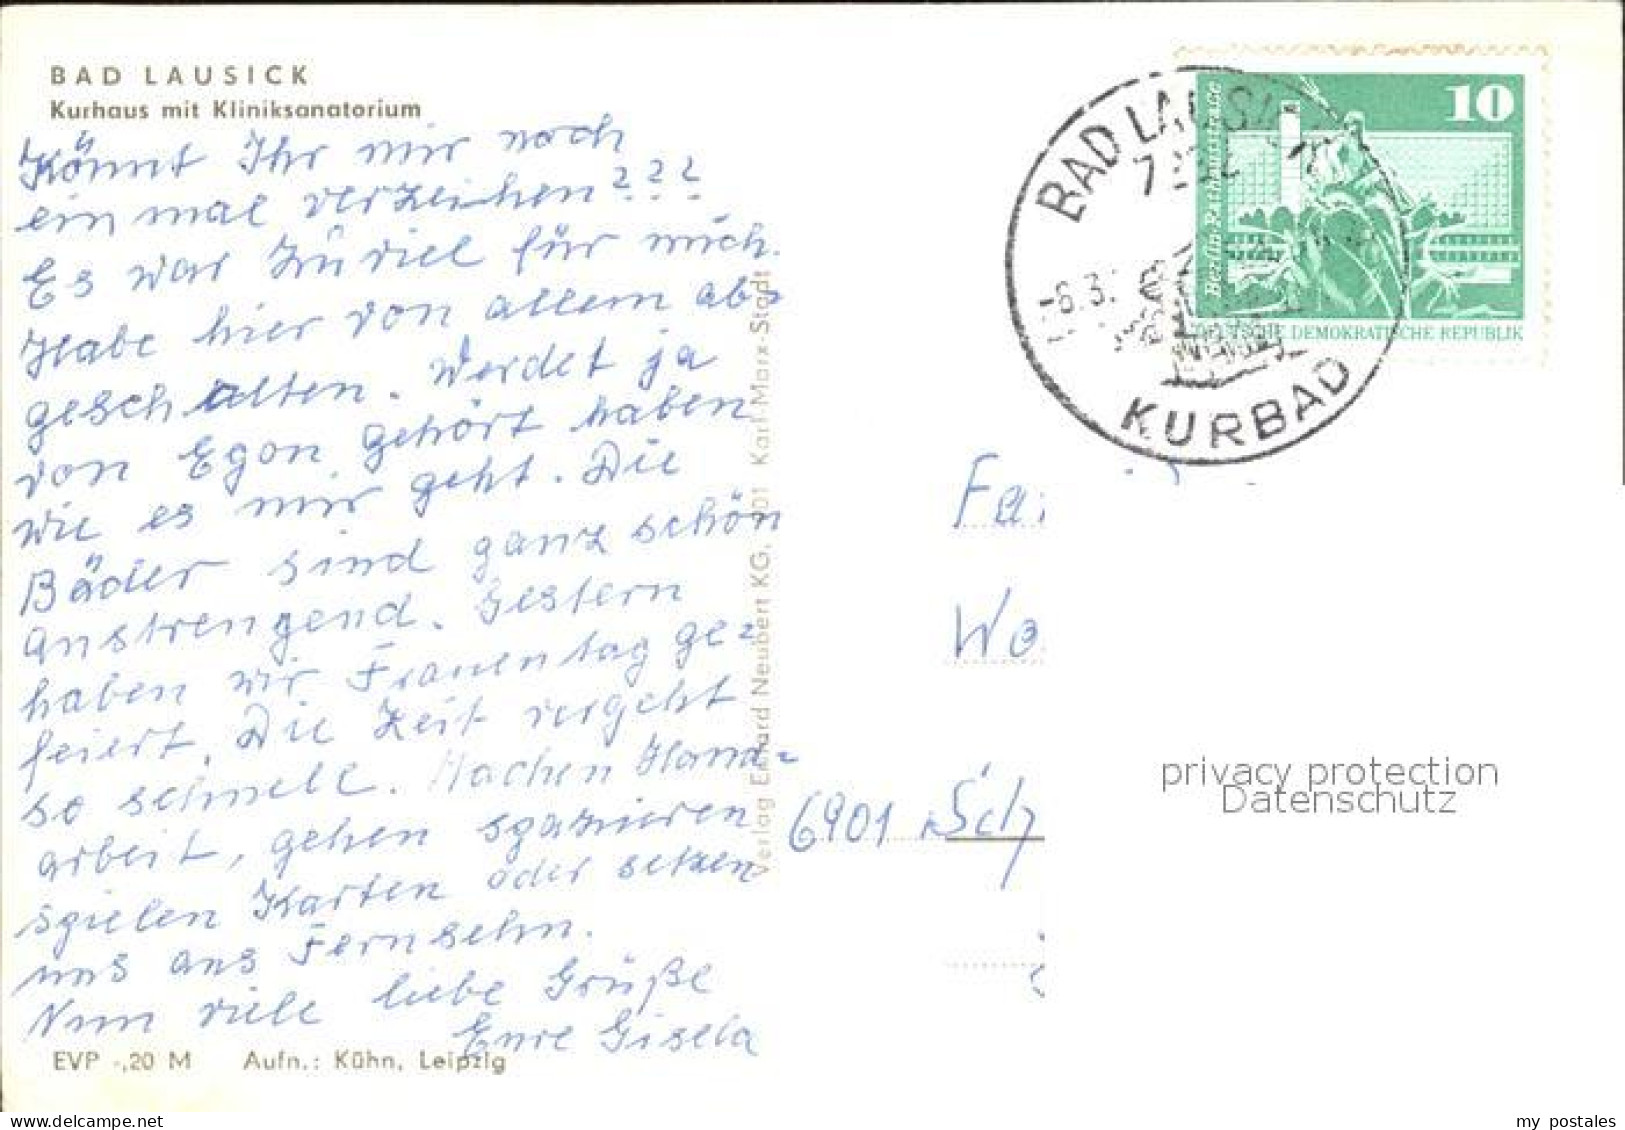 BAD LAUSICK
Kurhaus mit Kliniksanatorium
Könnt Ihr mir noch
ein mal verzeihen???
Es war zuviel für mich.
Habe hier von allem ab=
geschalten. Werdet ja
von Egon gehört haben
wie es mir geht. Die
Bäder sind ganz schön
anstrengend. Gestern
haben wir Frauentag ge=
feiert. Die Zeit vergeht
so schnell. Machen Hand=
arbeit, gehen spazieren
spielen Karten oder setzen
uns ans Fernsehn.
Nun viele liebe Grüße
Eure Gisela
EVP -,20 M Aufn.: Kühn, Leipzig
Verlag Erhard Neubert KG, 901 Karl-Marx-Stadt
BAD LAUSICK
-6.3.
KURBAD
10
Berlin-Rathausstraße
DEUTSCHE DEMOKRATISCHE REPUBLIK
Fa
Wo
6901 Sch
privacy protection
Datenschutz
delcampe.net
my_postales